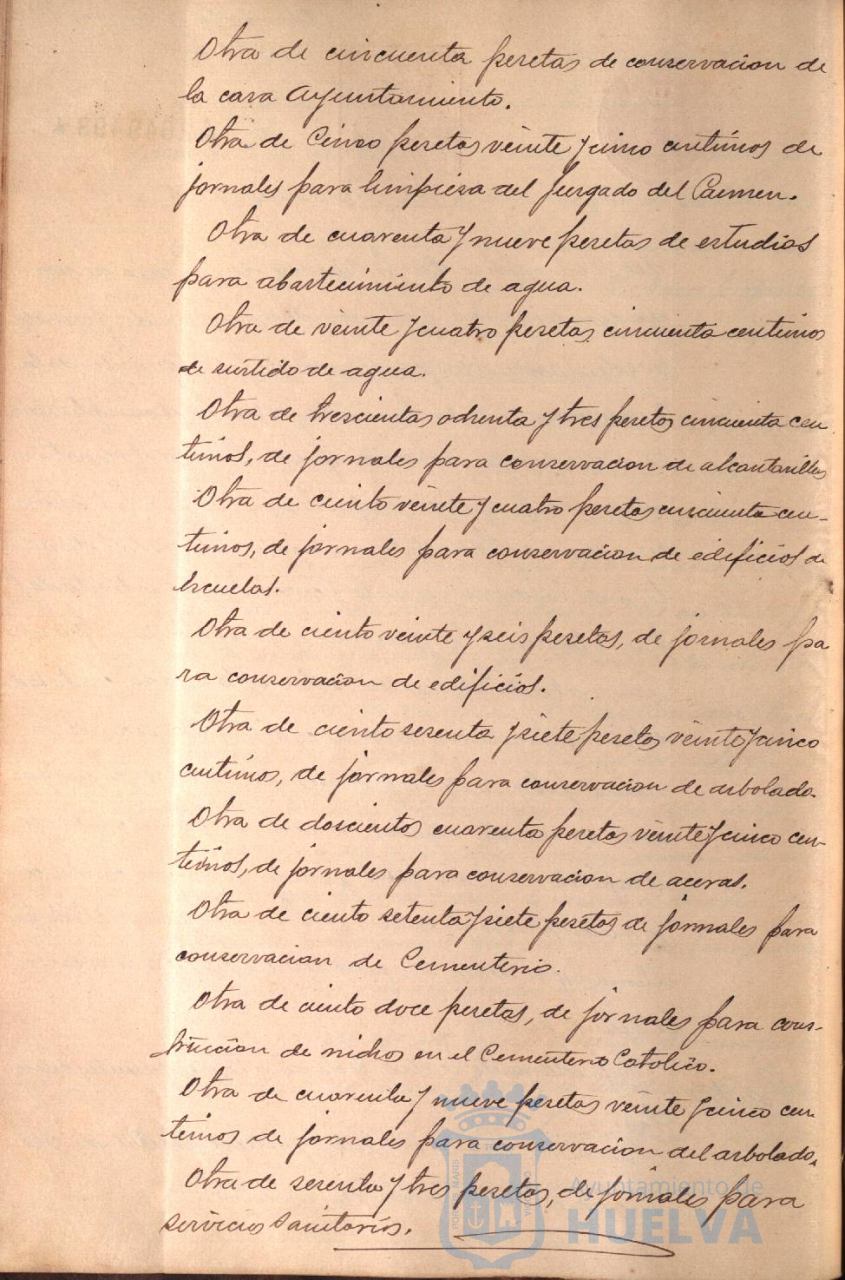 Otra de cincuenta pesetas de conservacion de
la casa Ayuntamiento.
Otra de Cinco pesetas veinte y cinco centimos de
jornales para limpiesa del Jusgado del Carmen.
Otra de cuarenta y nueve pesetas de estudios
para abastecimiento de agua.
Otra de veinte y cuatro pesetas cincuenta centimos
de surtido de agua.
Otra de trescientas ochenta y tres pesetas cincuenta cen
timos, de jornales para conservacion de alcantarillas
Otra de ciento veinte y cuatro pesetas cincuenta cen-
timos, de jornales para conservacion de edificios de
Escuelas.
Otra de ciento veinte y seis pesetas, de jornales pa
ra conservacion de edificios.
Otra de ciento sesenta y siete pesetas veinte y cinco
centimos, de jornales para conservacion de arbolado.
Otra de doscientos cuarenta pesetas veinte y cinco cen-
timos, de jornales para conservacion de aceras.
Otra de ciento setenta y siete pesetas de jornales para
conservacion de Cementerio.
Otra de ciento doce pesetas, de jornales para cons-
truccion de nichos en el Cementerio Catolico.
Otra de cuarenta y nueve pesetas veinte y cinco cen
timos de jornales para conservacion del arbolado.
Otra de sesenta y tres pesetas, de jornales para
servicios Sanitarios.
Ayuntamiento de
HUELVA